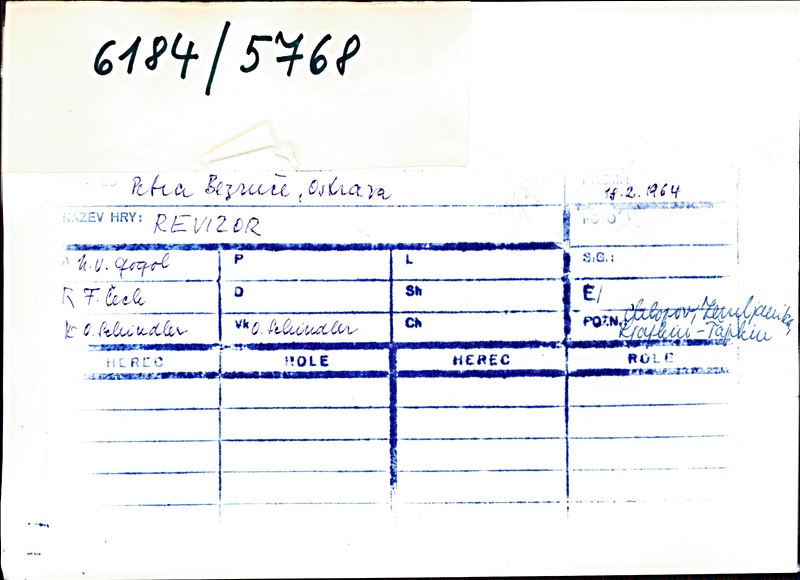 6184/5768
Petra Bezruče, Ostrava
18.2.1964
NÁZEV HRY: REVIZOR
FOTO
A N.V. Gogol P L S.G.:
R F. Čech D Sh Ej
K O. Schindler Vk O. Schindler Ch POZN.
HEREC ROLE HEREC ROLE